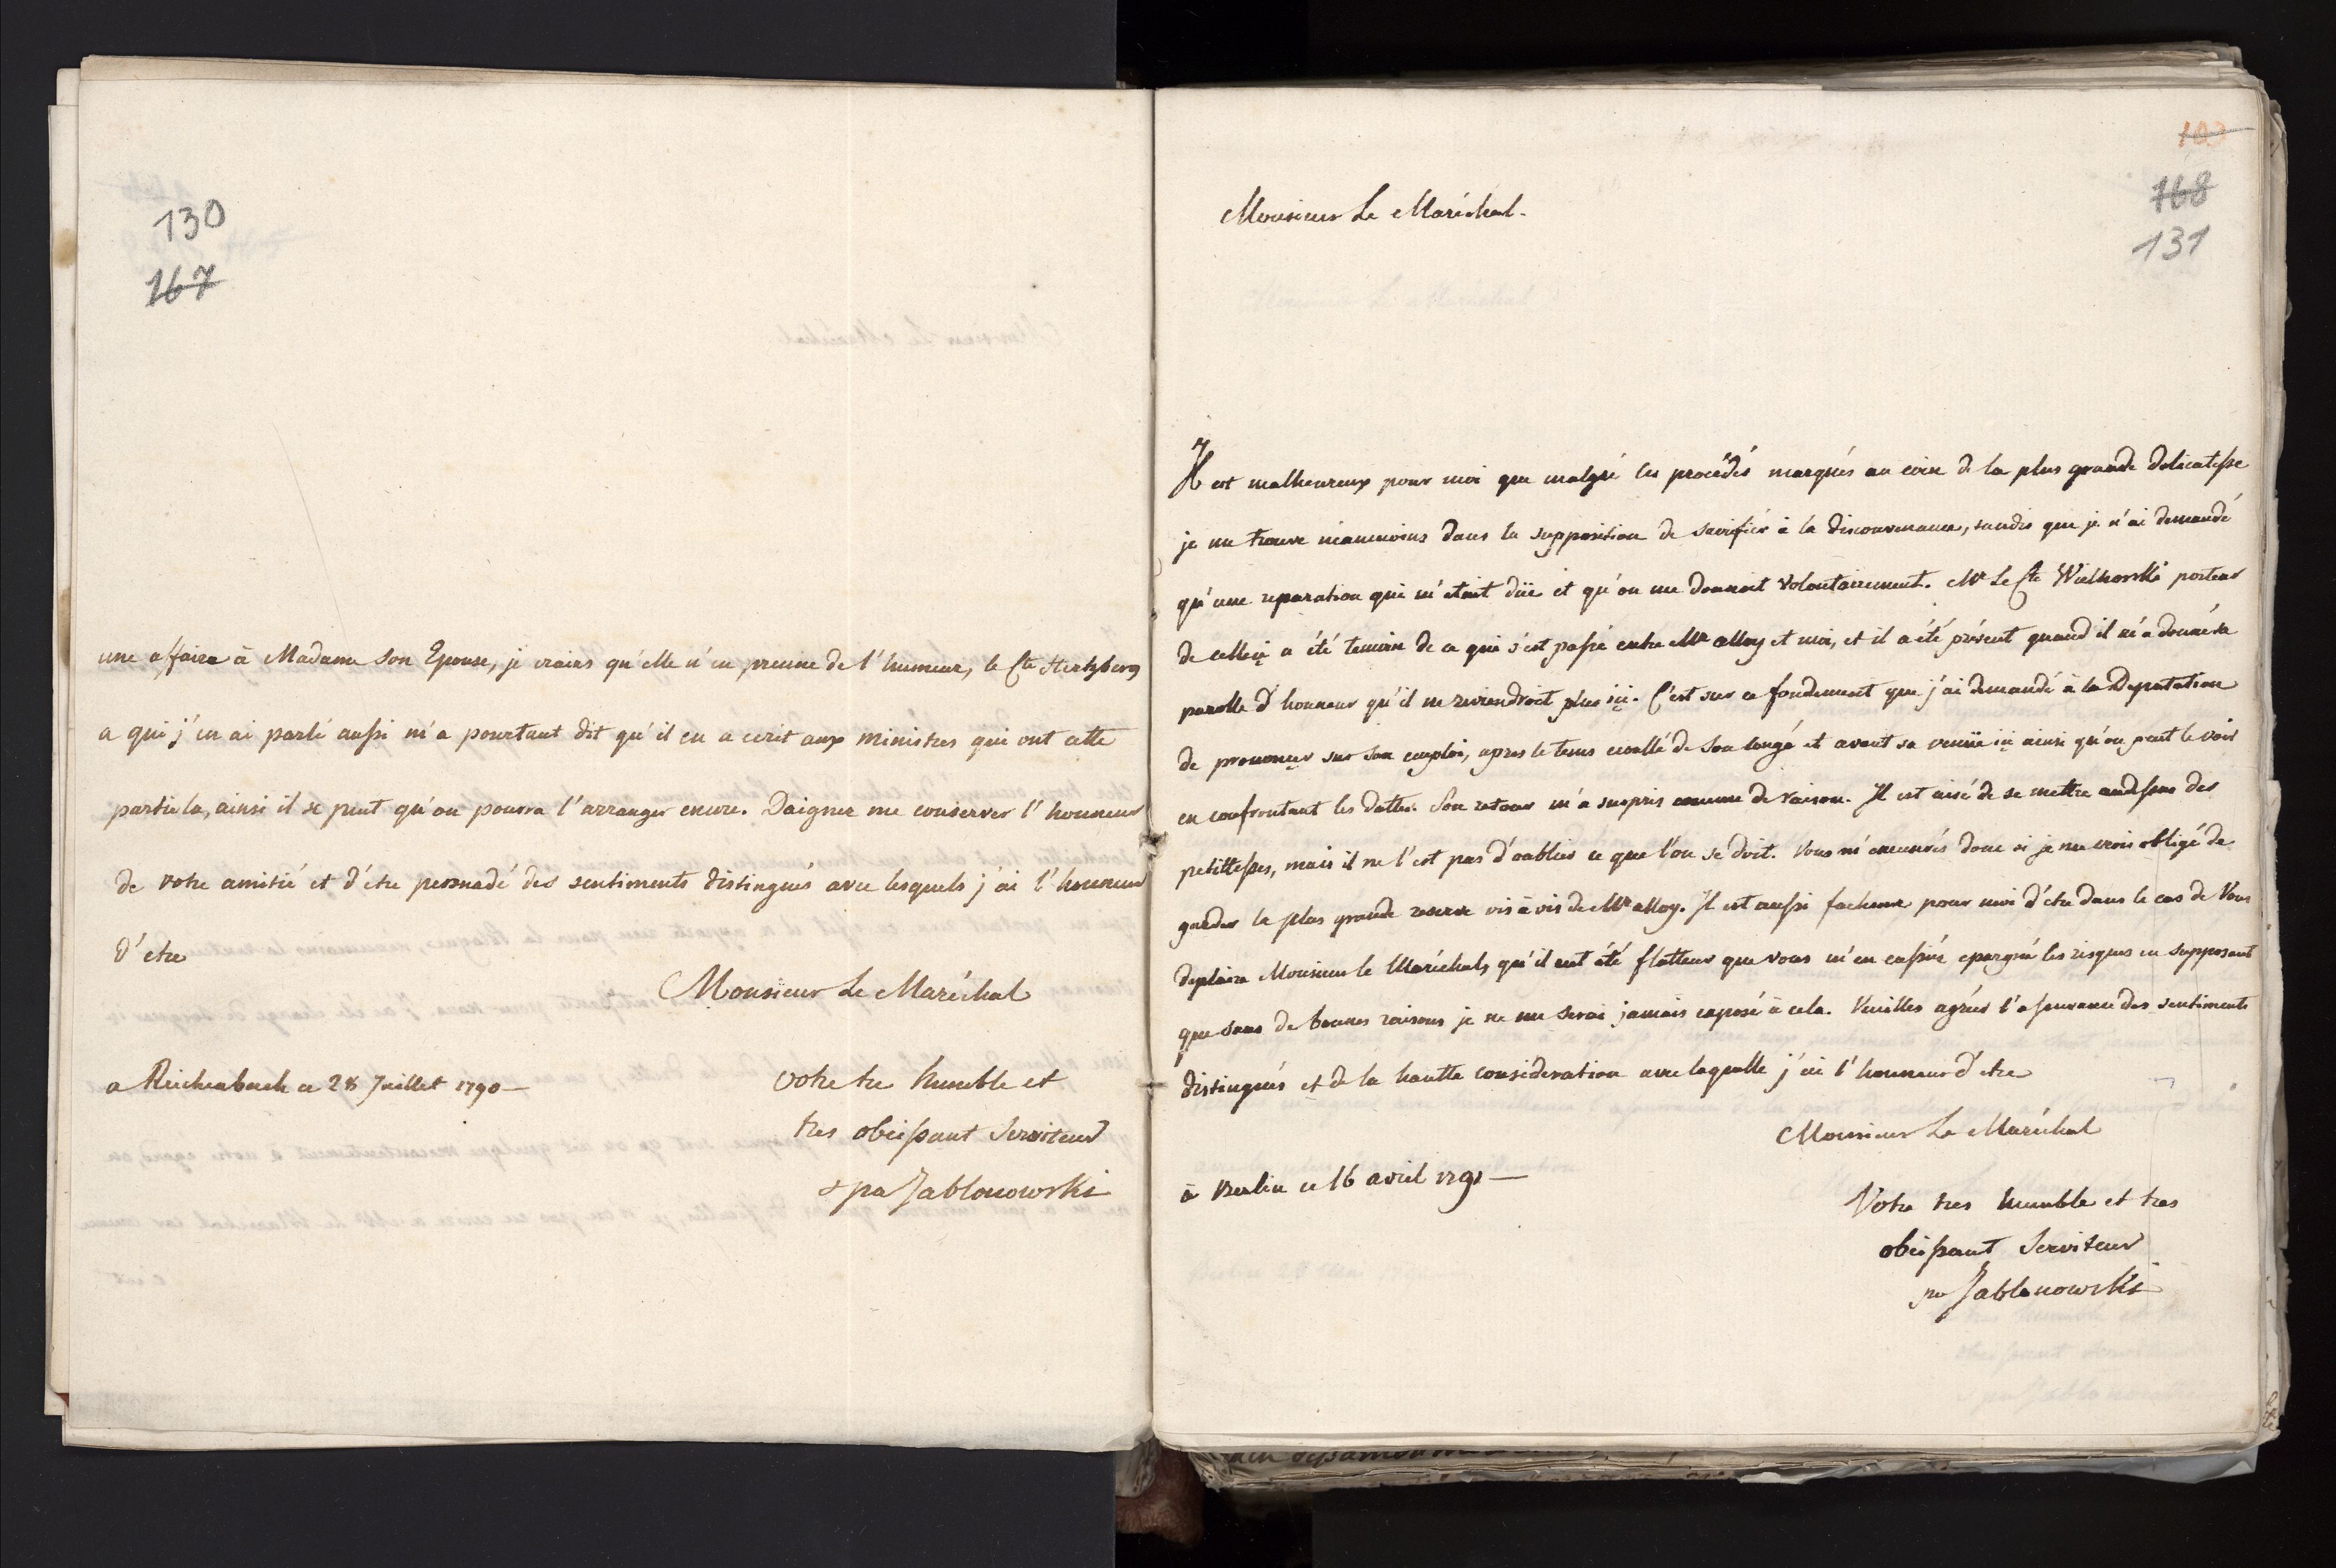 130
167
une affaire à Madame son Epouse, je crains qu'elle n'en prenne de l'humeur, le Cte Hertzberg
a qui j'en ai parlé aussi m'a pourtant dit qu'il en a ecrit aux ministres qui ont cette
partie la, ainsi il se peut qu'on pourra l'arranger encore. Daignez me conserver l'honneur
de votre amitié et d'étre persuadé des sentiments distingués avec lesquels j'ai l'honneur
d'etre
Monsieur Le Maréchal
a Reichenbach ce 28 Juillet 1790 —
votre tres humble et
tres obeissant Serviteur
Jablonowski
103
168
131
Monsieur Le Maréchal.
Il est malheureux pour moi que malgré les procédés marqués au coin de la plus grande delicatesse
je me trouve néanmoins dans la supposition de sacrifier à la disconvenance, tandis que je n'ai demandé
qu'une reparation qui m'etoit düe et qu'on me donnoit volontairement. Mr Le Cte Wielhorski porteur
de celleci a été temoin de ce qui s'est passé entre Mr alloy et moi, et il a été présent quand il m'a donné sa
parolle d'honneur qu'il ne reviendroit plus ici. C'est sur ce fondement que j'ai demandé à la Deputation
de prononcer sur son emploi, apres le tems ecoullé de son congé et avant sa venüe ici ainsi qu'on peut le voir
en confrontant les dattes. Son retour m'a surpris comme de raison. Il est aisé de se mettre audessus des
petittesses, mais il ne l'est pas d'oublier ce que l'on se doit. Vous m'excuserés donc si je me crois obligé de
garder la plus grande reserve vis à vis de Mr alloy. Il est aussi facheux pour moi d'étre dans le cas de Vous
deplaire Monsieur le Maréchal, qu'il eut été flatteur que vous m'en eussiés epargné les risques en supposant
que sans de bonnes raisons je ne me serai jamais exposé à cela. Veuilles agréer l'assurance des sentiments
distingués et de la hautte consideration avec laquelle j'ai l'honneur d'etre
Monsieur Le Maréchal
à Berlin ce 16 avril 1791 —
Votre tres humble et tres
obeissant Serviteur
Jablonowski